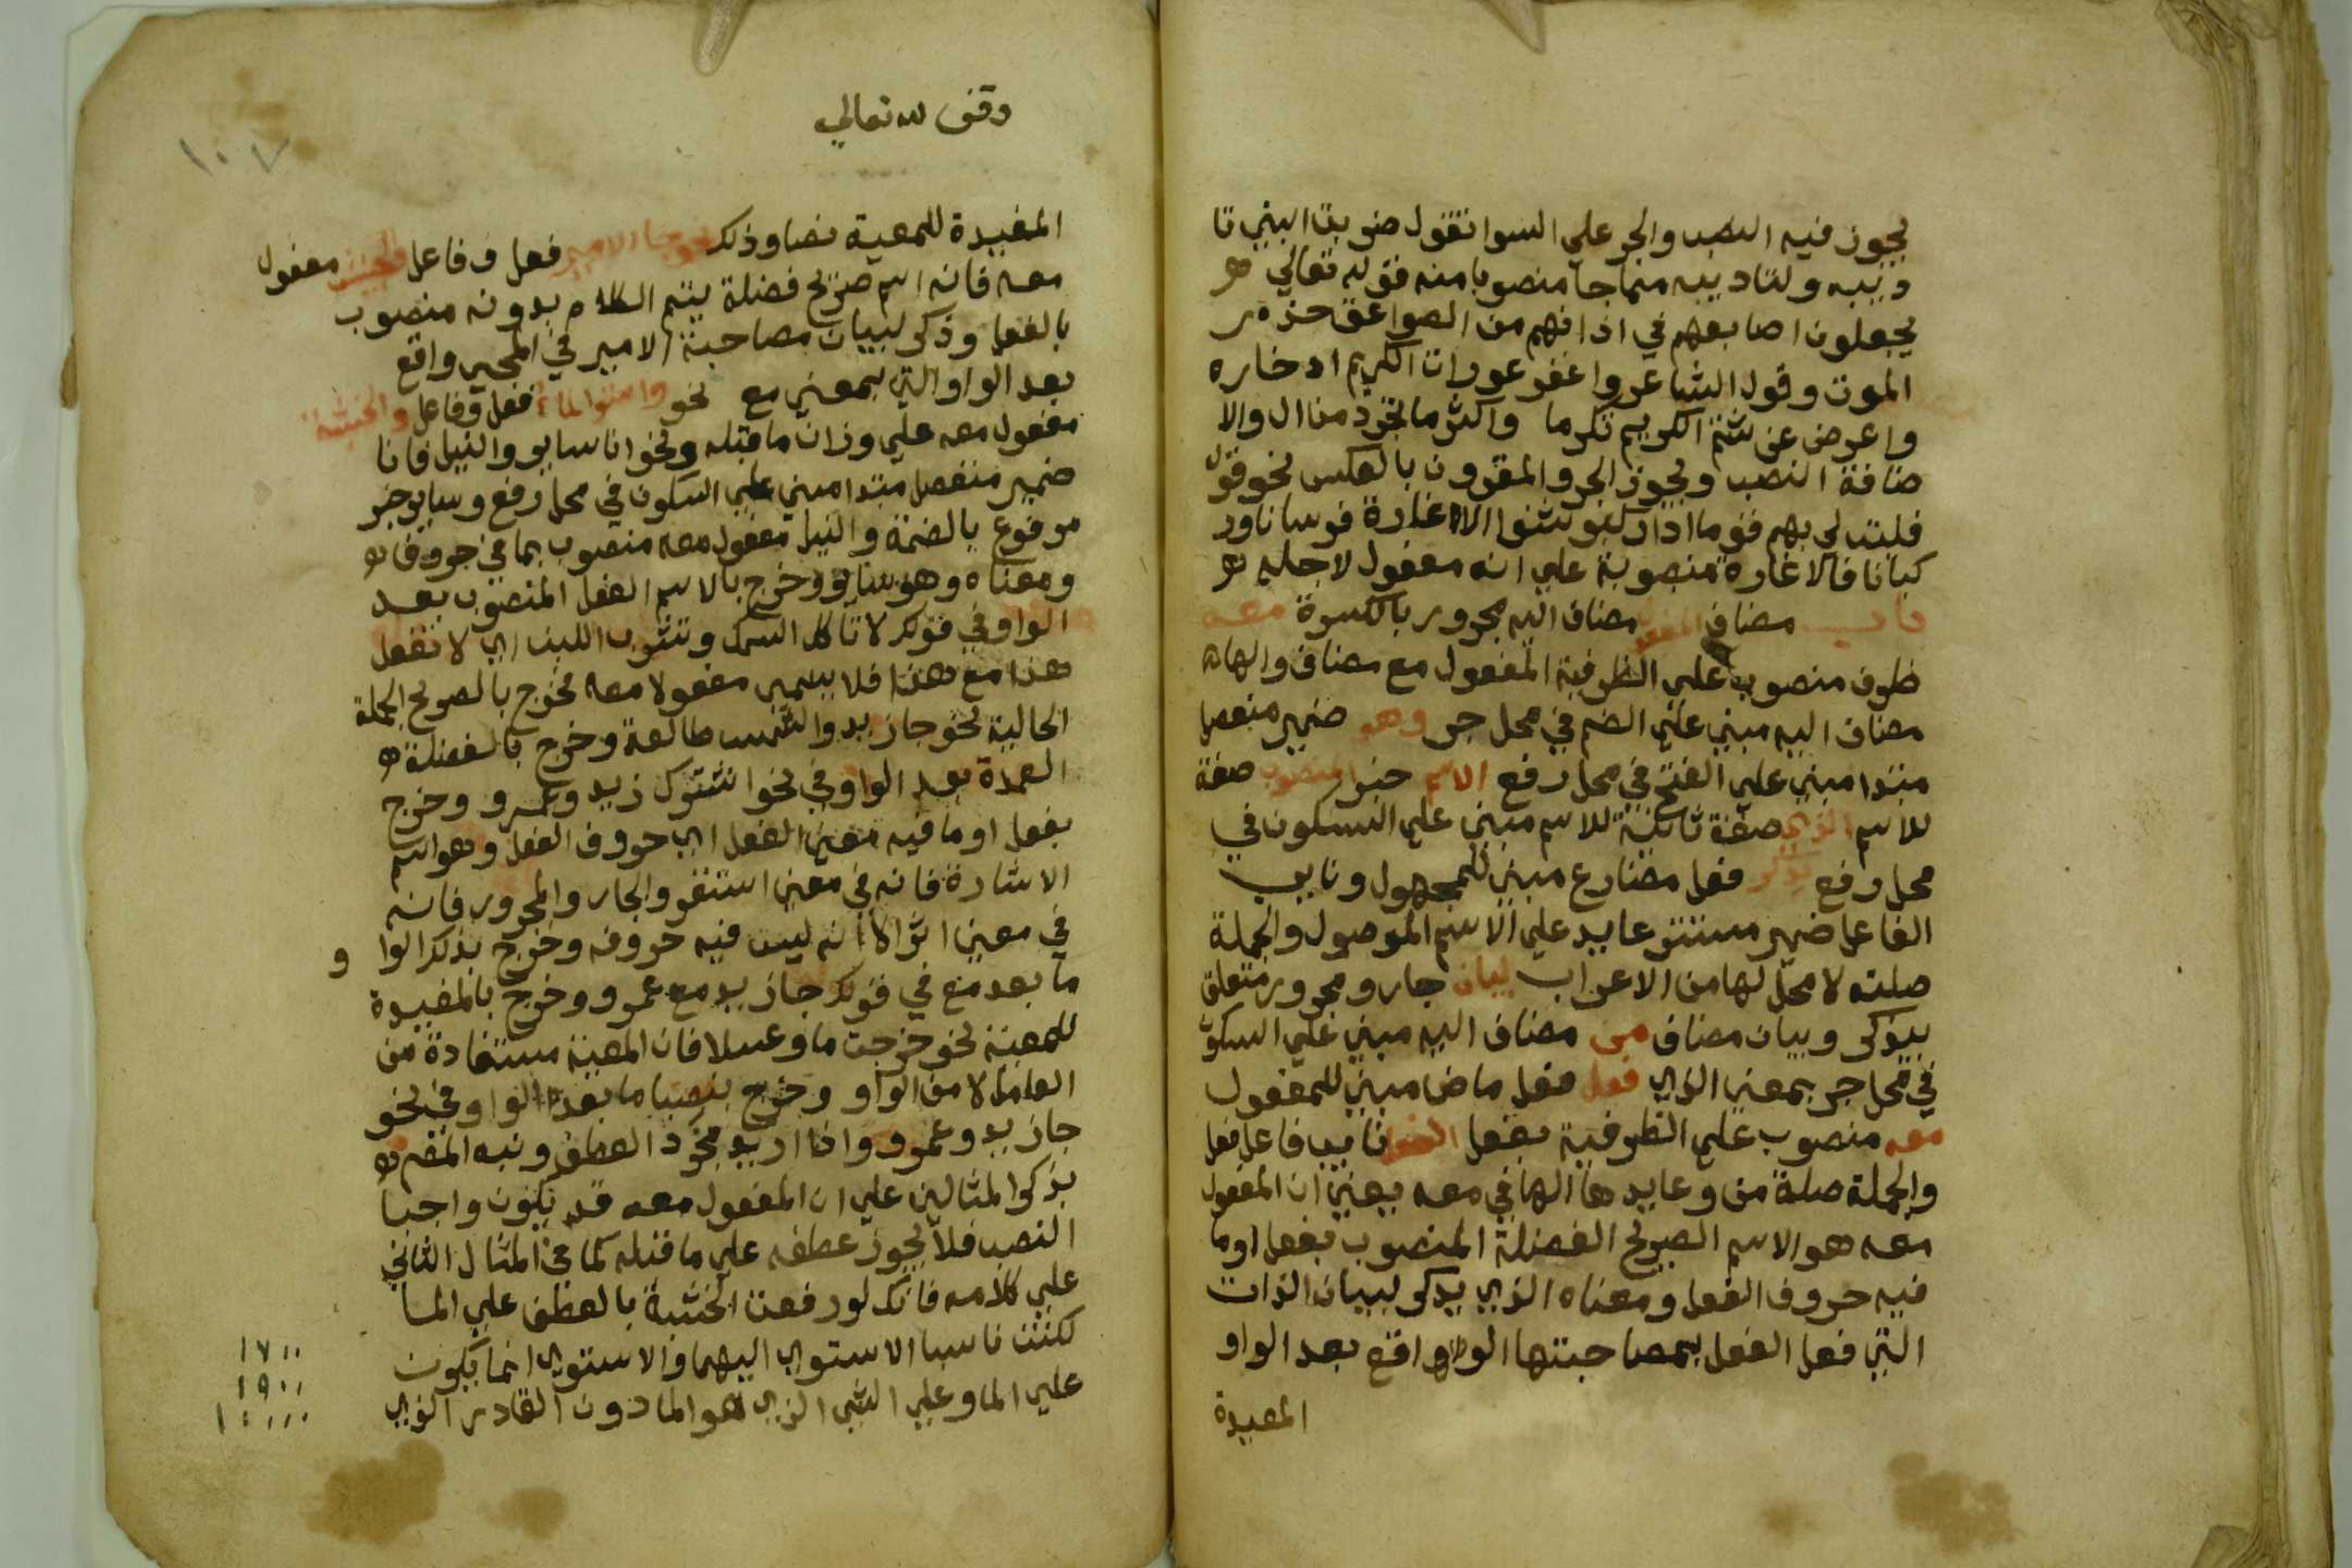 يجوز فيه النصب والجر علي السوا نقول ضربت ابني تا
ديبه ولتاديبه منماجا منصوبا منه قوله تعالي
يجعلون اصابعهم في اذانهم من الصواعق حذر
الموت وقول الشاعر واغفر عورات الكريم ادخاره
واعرض عن شتم الكريم تكرما واكثر ما تجرد من ال والا
ضافة النصب ويجوز الجر والمقرون بالعكس نحو قول
فليت لي بهم قوما اذا ركبو شنوا الاغارة فرسانا ور
كبانا فالاغارة منصوبة علي انه مفعول لاجله
باب مضاف المفعول مضاف اليه مجرور بالكسرة معه
ظرف منصوب علي الظرفية المفعول مع مضاف والهاء
مضاف اليه مبني علي الضم في محل جر وهو ضمير منفصل
مبتدا مبني علي الفتح في محل رفع الاسم خبر المنصوب صفة
للاسم الذي صفة ثانية للاسم مبني علي السكون في
محل رفع يذكر فعل مضارع مبني للمجهول ونايب
الفاعل ضمير مستتر عايد علي الاسم الموصول والجملة
صلته لا محل لها من الاعراب لبيان جار ومجرور متعلق
بيذكر وبيان مضاف من مضاف اليه مبني علي السكون
في محل جر بمعني الذي فعل فعل ماض مبني للمفعول
معه منصوب علي الظرفية بفعل الفعل نايب فاعل فعل
والجملة صلة من وعايدها الها في معه يعني ان المفعول
معه هو الاسم الصريح الفضلة المنصوب بفعل او ما
فيه حروف الفعل ومعناه الذي يذكر لبيان الذات
التي فعل الفعل بمصاحبتها الواقع بعد الواو
المفيدة
وقف لله تعالي
١٠٧
المفيدة للمعية نصا وذلك نحو جا الامير فعل وفاعل والجيش مفعول
معه فانه اسم صريح فضلة يتم الكلام بدونه منصوب
بالفعل وذكر لبيان مصاحبة الامير في المجي واقع
بعد الواو التي بمعني مع نحو واستوا الماء فعل وفاعل والخشبة
مفعول معه علي وزان ما قبله ونحو انا ساير والنيل فانا
ضمير منفصل مبتدا مبني علي السكون في محل رفع وساير خبر
مرفوع بالضمة والنيل مفعول معه منصوب بما في حروفه
ومعناه وهو ساير وخرج بالاسم الفعل المنصوب بعد
الواو في قولك لا تاكل السمك وتشرب اللبن اي لا تفعل
هذا مع هذا فلا يسمي مفعولا معه مخرج بالصريح الجملة
الحالية نحو جا زيد والشمس طالعة وخرج بالفضلة
العمدة بعد الواو في نحو اشترك زيد وعمرو وخرج
بفعل او ما فيه معني الفعل اي حروف الفعل وهو اسم
الاشارة فانه في معني استقر والجار والمجرور فانه
في معني انه ليس فيه حروفه وخرج بذكر الوا و
ما بعد مع في قولك جا زيد مع عمرو وخرج بالمفيدة
للمعية نحو مزجت ما وعسلا فان المعية مستفادة من
العامل لا من الواو وخرج بنصبا ما بعد الواو في نحو
جا زيد وعمرو واذا اريد مجرد العطف ونبه المصم
بذكر المثالين علي ان المفعول معه قد يكون واجبا
النصب فلا يجوز عطفه علي ما قبله كما في المثال الثاني
علي كلامه فانك لو رفعت الخشبة بالعطف علي الما
لكنت ناسبا الاستوي اليهما والاستوي انما يكون
علي الما وعلي الشي الذي هو الما دون القادر الذي
١٧٠٠
١٩٠٠
١٤٠٠٠